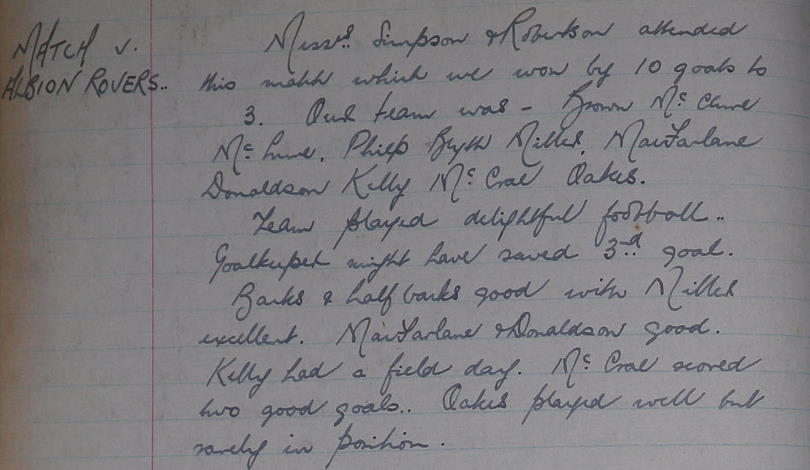 MATCH V.
ALBION ROVERS..
Messrs. Simpson & Robertson attended
this match which we won by 10 goals to
3. Our team was - Brown McClure
McLure, Philp Blyth Miller, MacFarlane
Donaldson Kelly McCrae Oakes.
Team played delightful football..
Goalkeeper might have saved 3rd goal.
Backs & half backs good with Miller
excellent. MacFarlane & Donaldson good.
Kelly had a field day. McCrae scored
two good goals.. Oakes played well but
rarely in position.